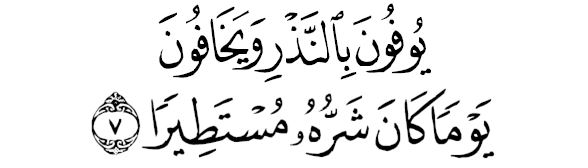 يُوفُونَ بِٱلنَّذْرِ وَيَخَافُونَ
يَوْمًا كَانَ شَرُّهُۥ مُسْتَطِيرًا ٧